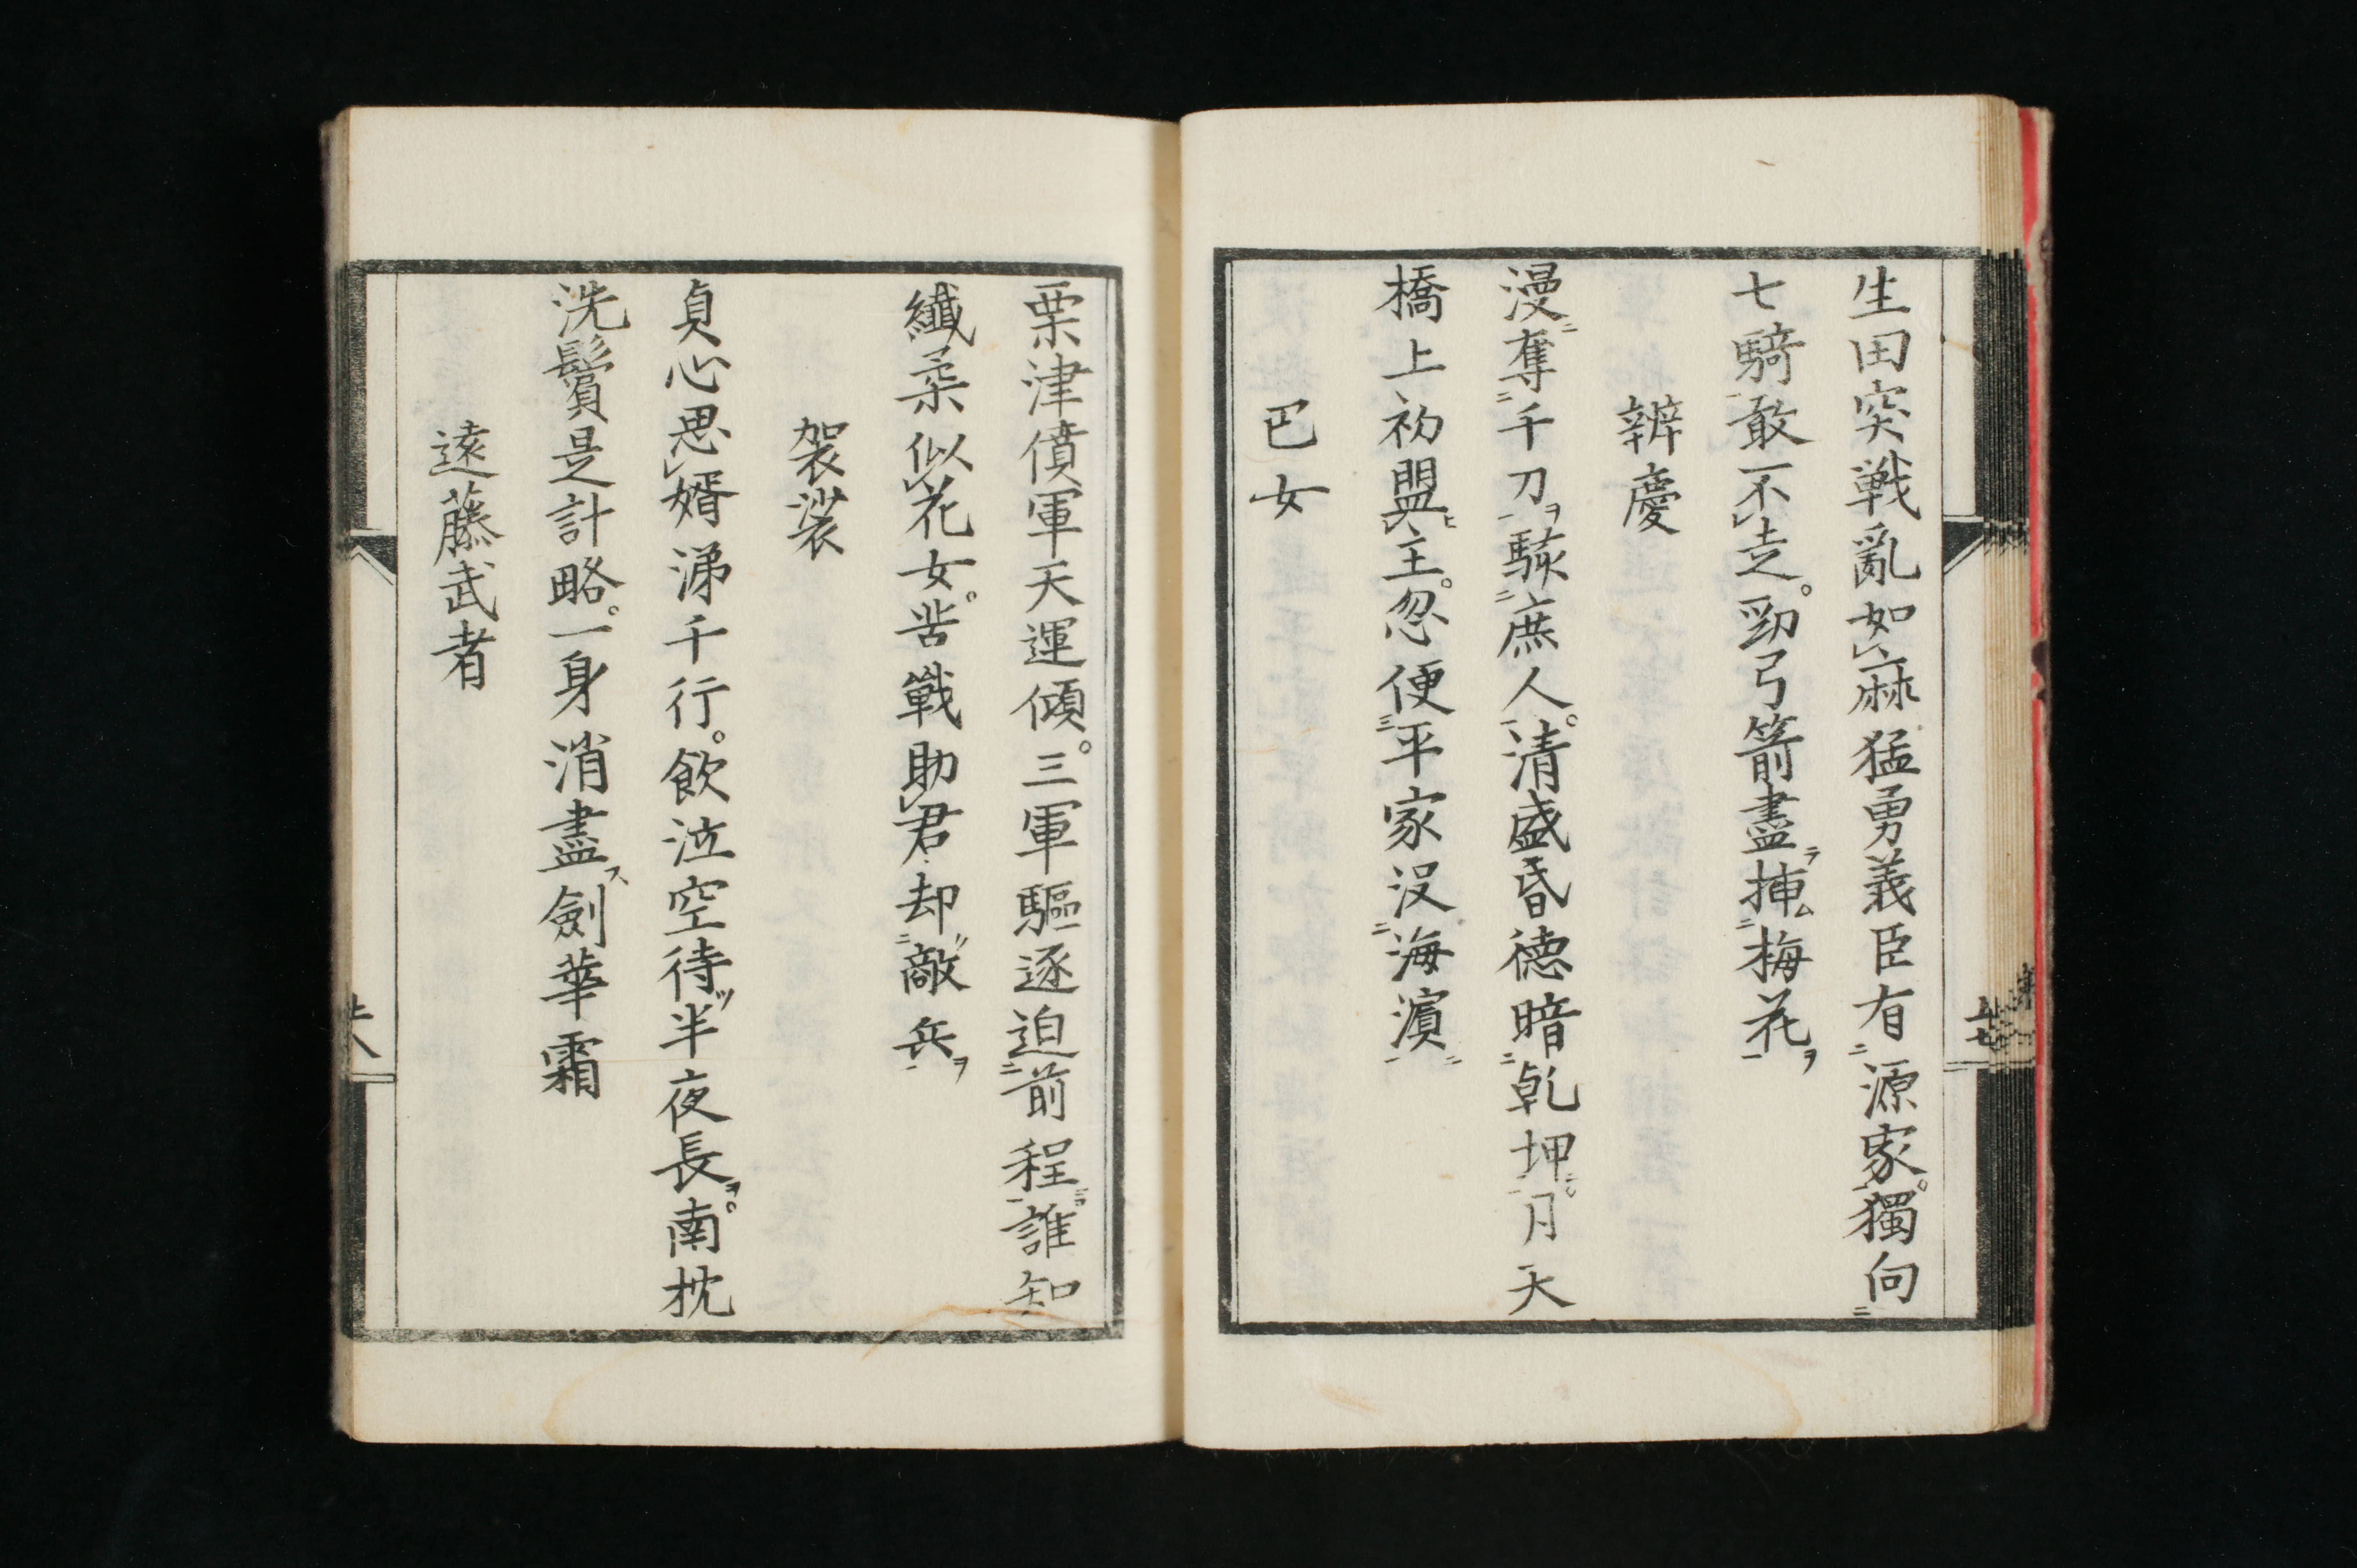 生田突戦亂如麻猛勇義臣有源家。獨向
七騎敢不走。勁弓箭盡挿梅花
辨慶
漫奪千刀駭庶人。清盛昏德暗乾坤。月天
橋上初盟主。忽便平家没海濵
巴女
粟津僨軍天運傾。三軍驅逐迫前程誰知
纎柔似花女。苦戰助君却敵兵
袈裟
貞心思婿涕千行。飲泣空待半夜長。南枕
洗鬢是計略。一身消盡劍華霜
遠藤武者